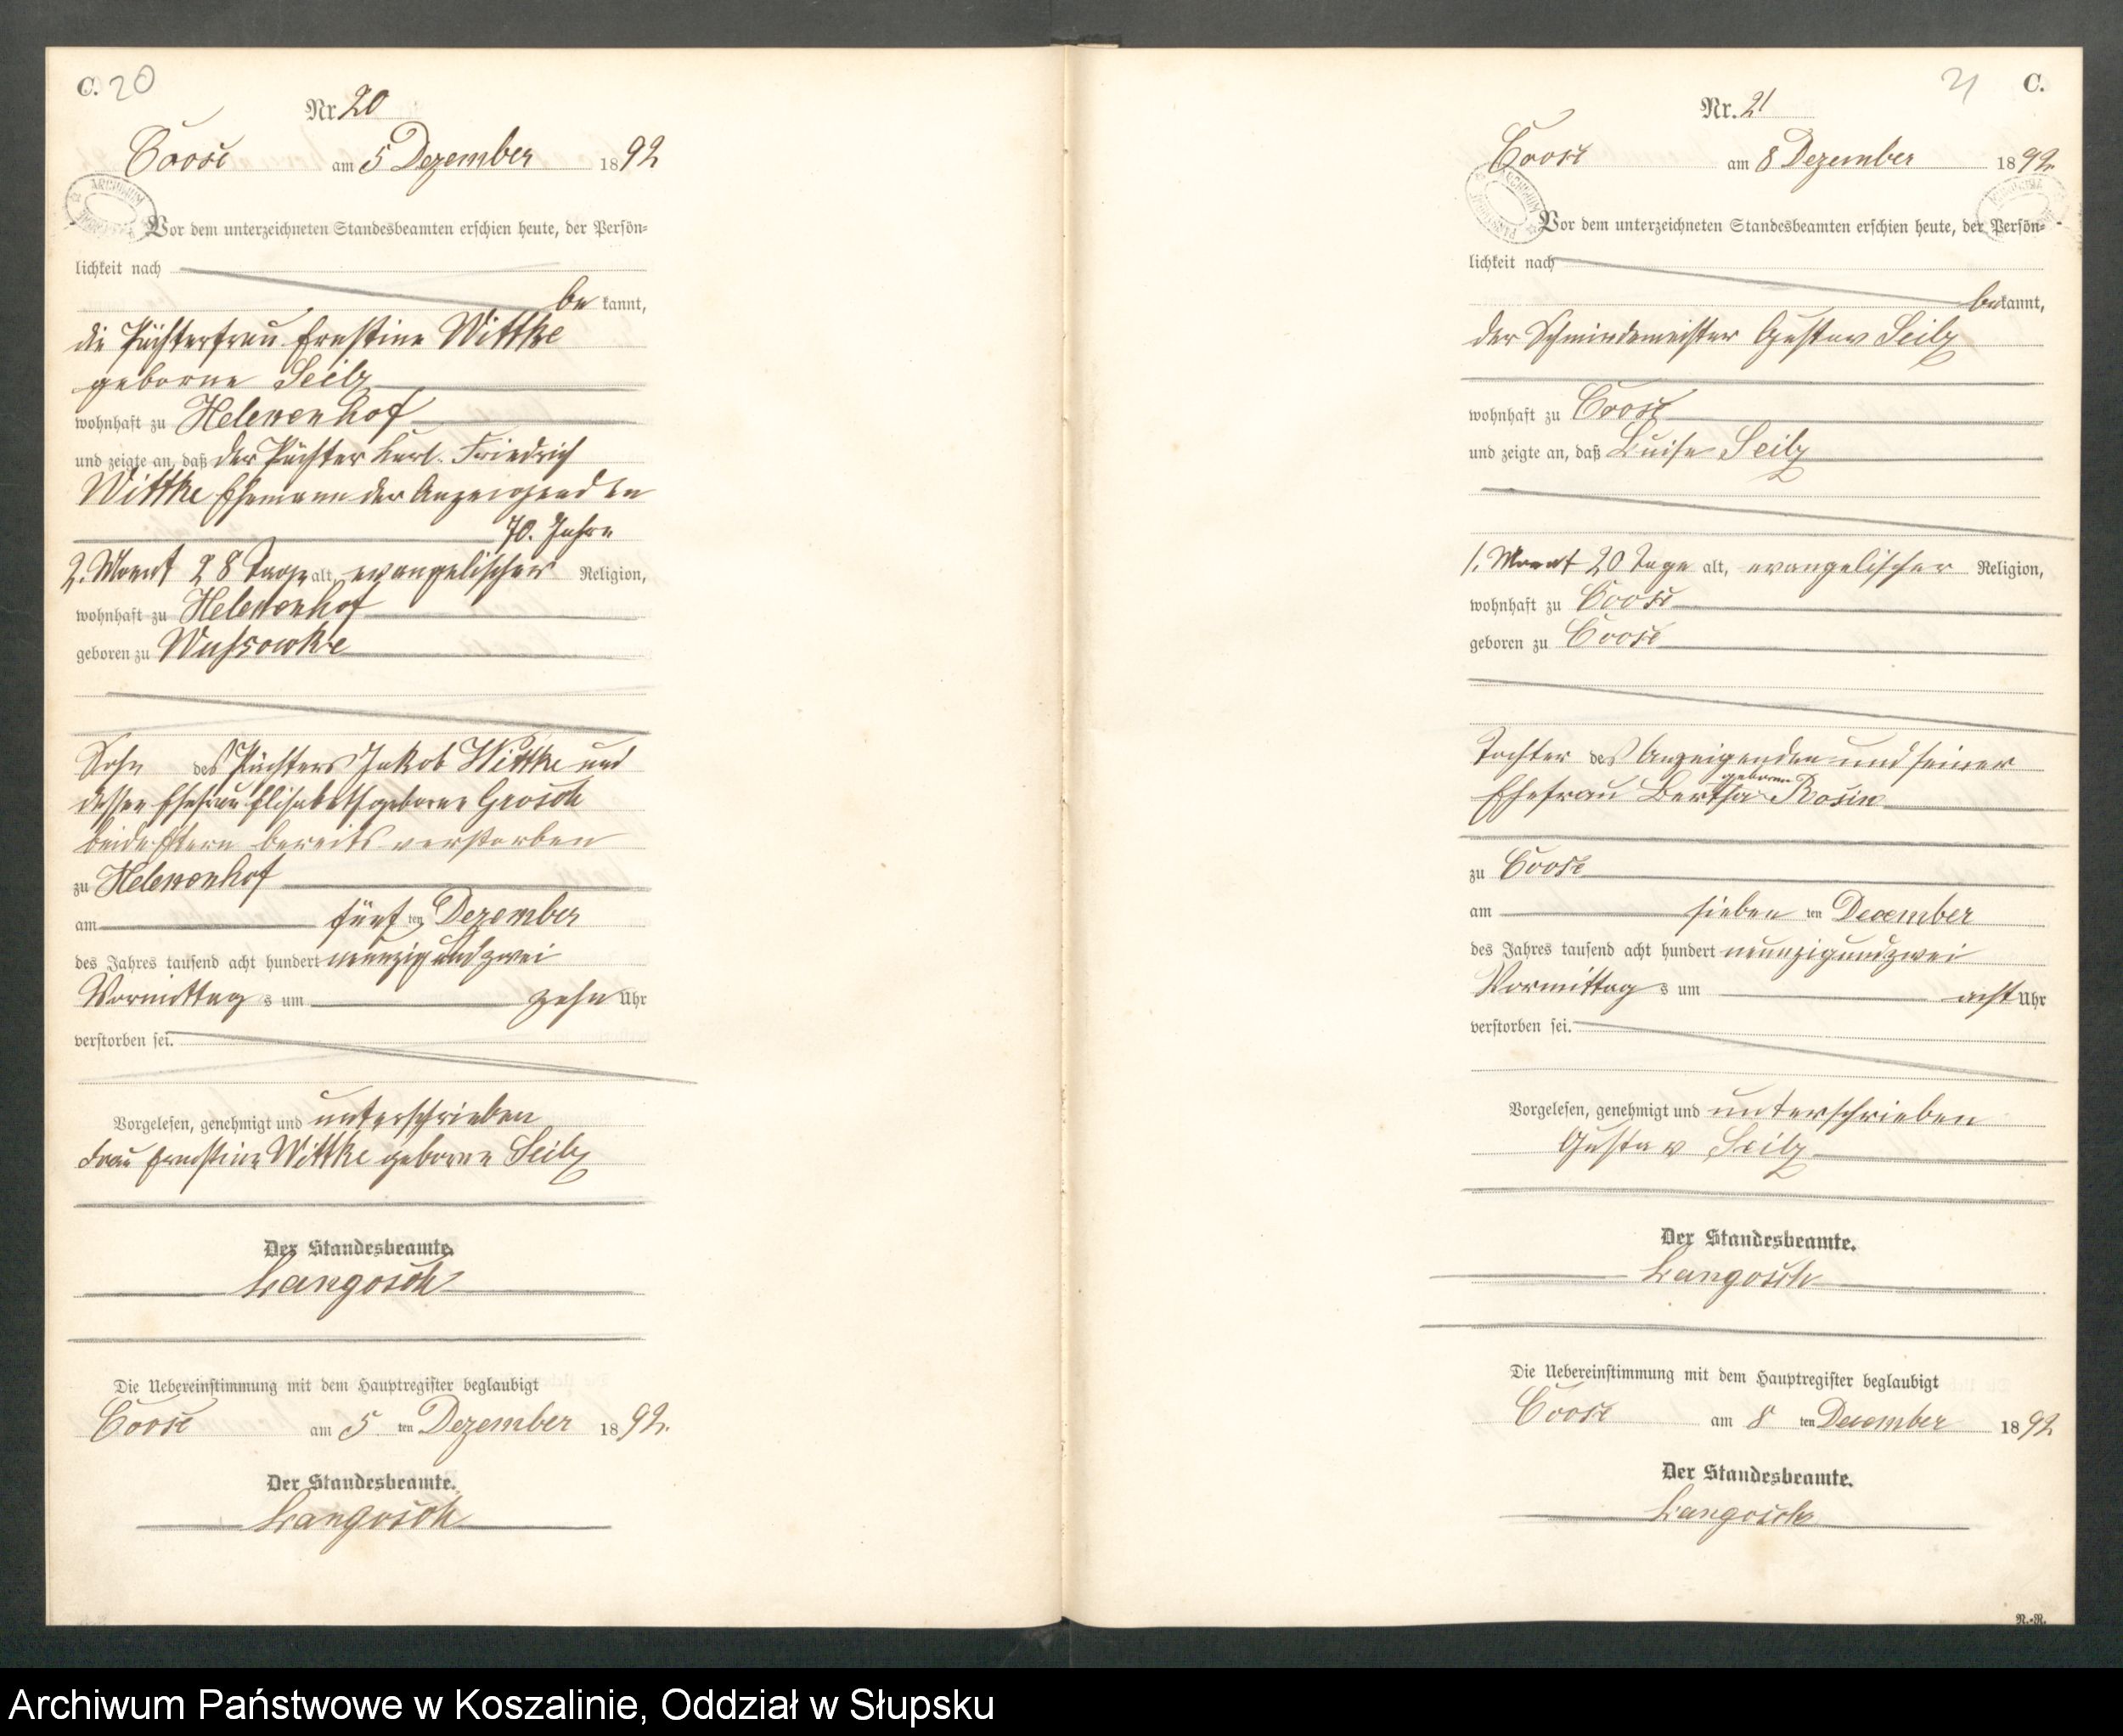 C. 20
Nr 20
Coose am 5 Dezember 1892
Vor dem unterzeichneten Standesbeamten erschien heute, der Persön-
lichkeit nach
be kannt,
die Pächterfrau Ernstine Wittke
geborne Seilz
wohnhaft zu Helenenhof
und zeigte an, daß der Pächter Karl Friedrich
Wittke Ehemann der Anzeigenden
70. Jahre
2. Monat 28 Tage alt, evangelischer Religion,
wohnhaft zu Helenenhof
geboren zu Wussowke
Sohn des Pächters Jakob Wittke und
dessen Ehefrau Elisabeth geborne Grosch
beide Eltern bereits verstorben
zu Helenenhof
am fünf ten Dezember
des Jahres tausend acht hundert neunzig und zwei
Vormittag s um zehn Uhr
verstorben sei.
Vorgelesen, genehmigt und unterschrieben
Frau Ernstine Wittke geborne Seilz
Der Standesbeamte.
Langosch
Die Uebereinstimmung mit dem Hauptregister beglaubigt
Coose am 5 ten Dezember 1892.
Der Standesbeamte.
Langosch
21 C.
Nr. 21
Coose am 8 Dezember 1892
ARCHIWUM
Vor dem unterzeichneten Standesbeamten erschien heute, der Persön-
lichkeit nach
bekannt,
der Schmiedemeister Gustav Seilz
wohnhaft zu Coose
und zeigte an, daß Luise Seilz
1. Monat 20 Tage alt, evangelischer Religion,
wohnhaft zu Coose
geboren zu Coose
Tochter des Anzeigenden und seiner
Ehefrau Bertha geborne Rosin
zu Coose
am sieben ten December
des Jahres tausend acht hundert neunzigundzwei
Vormittag s um acht Uhr
verstorben sei.
Vorgelesen, genehmigt und unterschrieben
Gustav Seilz
Der Standesbeamte.
Langosch
Die Uebereinstimmung mit dem Hauptregister beglaubigt
Coose am 8 ten December 1892
Der Standesbeamte.
Langosch
R.-R.
Archiwum Państwowe w Koszalinie, Oddział w Słupsku